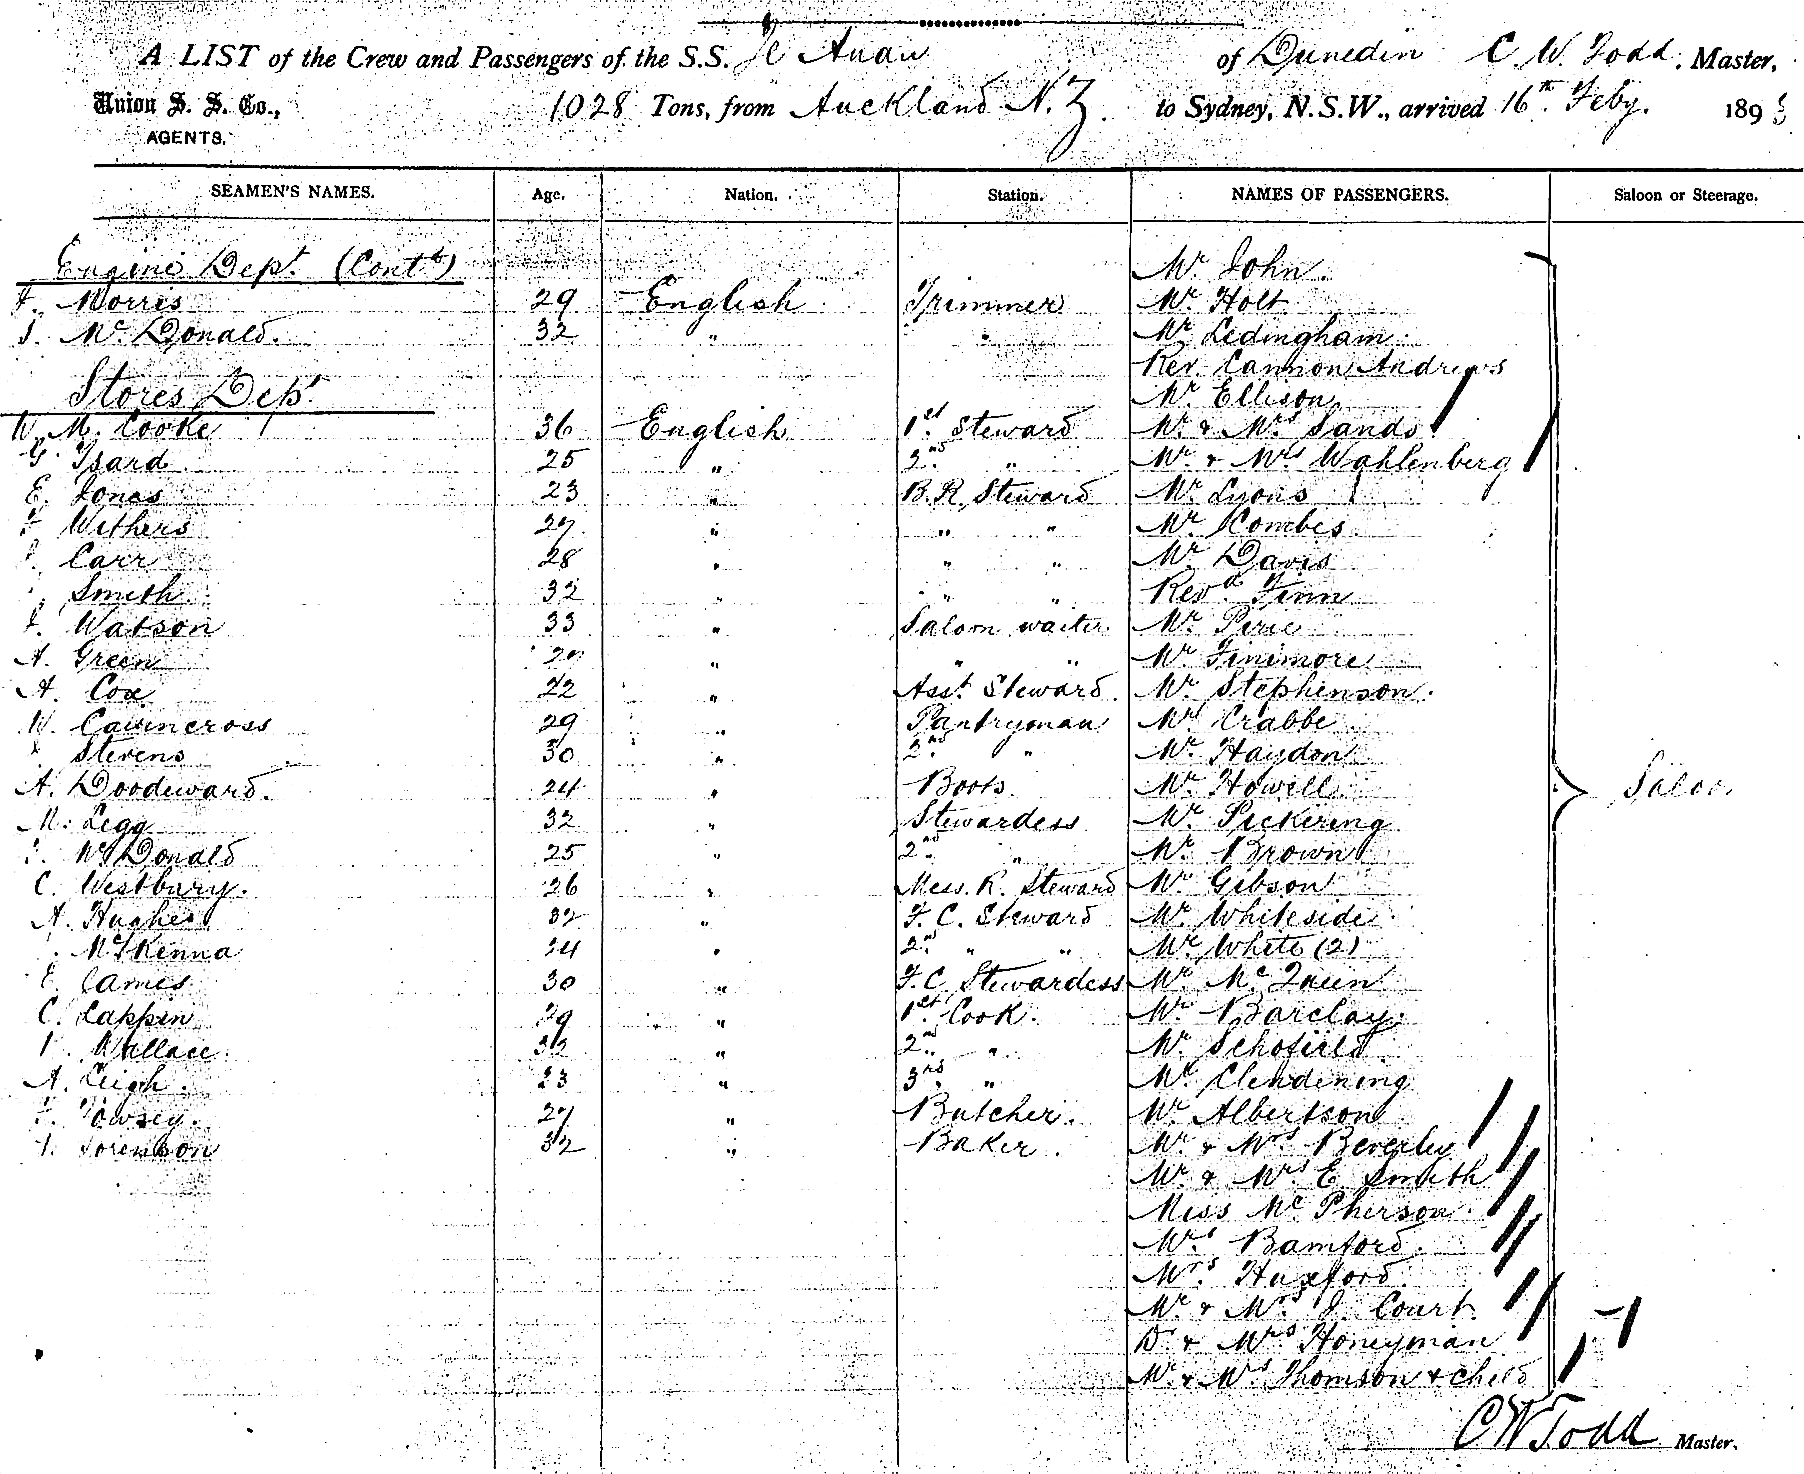 A LIST of the Crew and Passengers of the S.S. Te Anau of Dunedin C. W. Todd, Master,
Union S. S. Co., 1028 Tons, from Auckland N.Z. to Sydney, N.S.W., arrived 16th Feby. 189
AGENTS.
SEAMEN'S NAMES. Age. Nation. Station. NAMES OF PASSENGERS. Saloon or Steerage.
Engine Dept (Contd) Mr John
Morris 29 English Trimmer Mr Holt
Mc Donald. 32 " " Mr Ledingham
Rev. Cannon Andrews
Stores Dept Mr Ellison
W. M. Cooke 36 English 1st Steward Mr & Mrs Sands
G. Isard 25 " 2nd " Mr & Mrs Wahlenberg
E. Jones 23 " B.R. Steward Mr Lyons
Withers 27 " " " Mr Combes
Carr 28 " " " Mr Davis
Smith 32 " " " Revd Finn
Watson 33 " Saloon waiter Mr Pirie
A. Green " " " Mr Finimore
A. Cox 22 " Asst Steward. Mr Stephinson.
W. Cairncross 29 " Pantryman Mr Crabbe
Stevens 30 " 2nd " Mr Haydon
A. Doodeward. 24 " Boots. Mr Howill
M. Legg 32 " Stewardess Mr Pickering
McDonald 25 " 2nd " Mr Brown
C. Westbury. 26 " Mess. R. Steward Mr Gibson
A. Hughes 32 " F. C. Steward Mr Whiteside
McKenna 24 " 2nd " " Mr White (2)
E. James 30 " F.C. Stewardess Mr Mc Queen
C. Lappin 29 " 1st Cook. Mr Barclay.
Wallace. 32 " 2nd " Mr Schofield
A. Leigh. 23 " 3rd " Mr Clendining
Towsey. 27 " Butcher. Mr Albertson
Sorenson 32 " Baker. Mr & Mrs Beverley
Mr & Mrs E. Smith
Miss McPherson
Mrs Bamford.
Mrs Huxford.
Mr & Mrs J. Court
Dr & Mrs Honeyman
Mr & Mrs Thomson & child
Saloon
C W Todd Master.